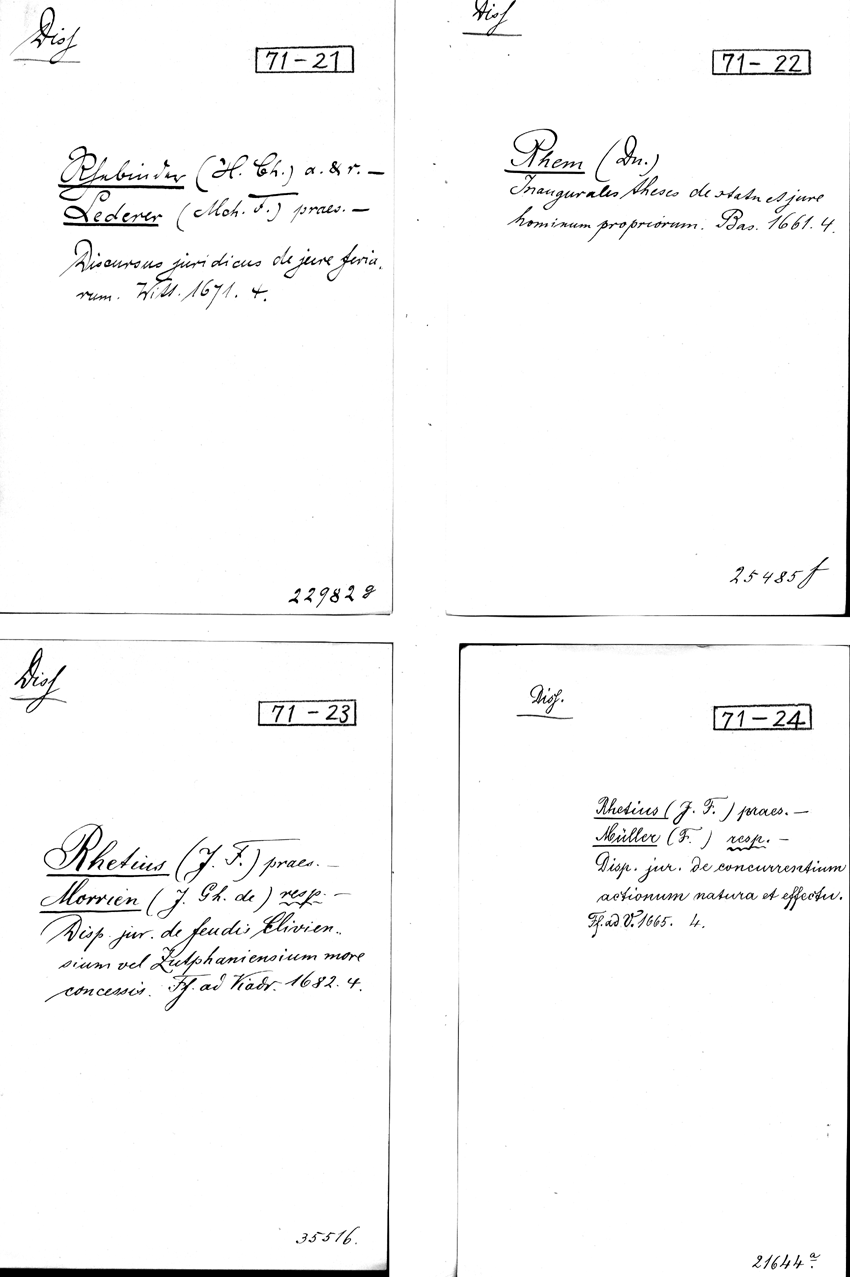 Diss
71-21
Rhebinder (H. Ch.) a. & r. —
Lederer (Mch. F.) praes. —
Discursus juridicus de jure feria-
rum. Witt. 1671. 4.
22982 g
Diss
71-22
Rhem (Dn.)
Inaugurales theses de statu et jure
hominum propriorum. Bas. 1661. 4.
25485 f
Diss
71-23
Rhetius (J. F.) praes. —
Morrien (J. Gh. de) resp. —
Disp. jur. de feudis Clivien-
sium vel Zutphaniensium more
concessis. Ff. ad Viadr. 1682. 4.
35516.
Diss.
71-24
Rhetius (J. F.) praes. —
Müller (F.) resp. —
Disp. jur. de concurrentium
actionum natura et effectu.
Ff. ad V. 1665. 4.
21644 a.